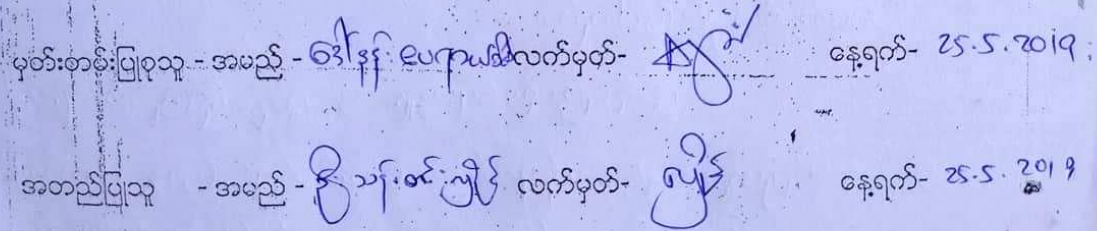 မှတ်တမ်းပြုစုသူ - အမည် - ဒေါ်နန်း လက်မှတ်- နေ့ရက်- 25.5.2019
အတည်ပြုသူ - အမည် - ဦးသန်းဝင်းလှိုင် လက်မှတ်- လှိုင် နေ့ရက်- 25.5.2019